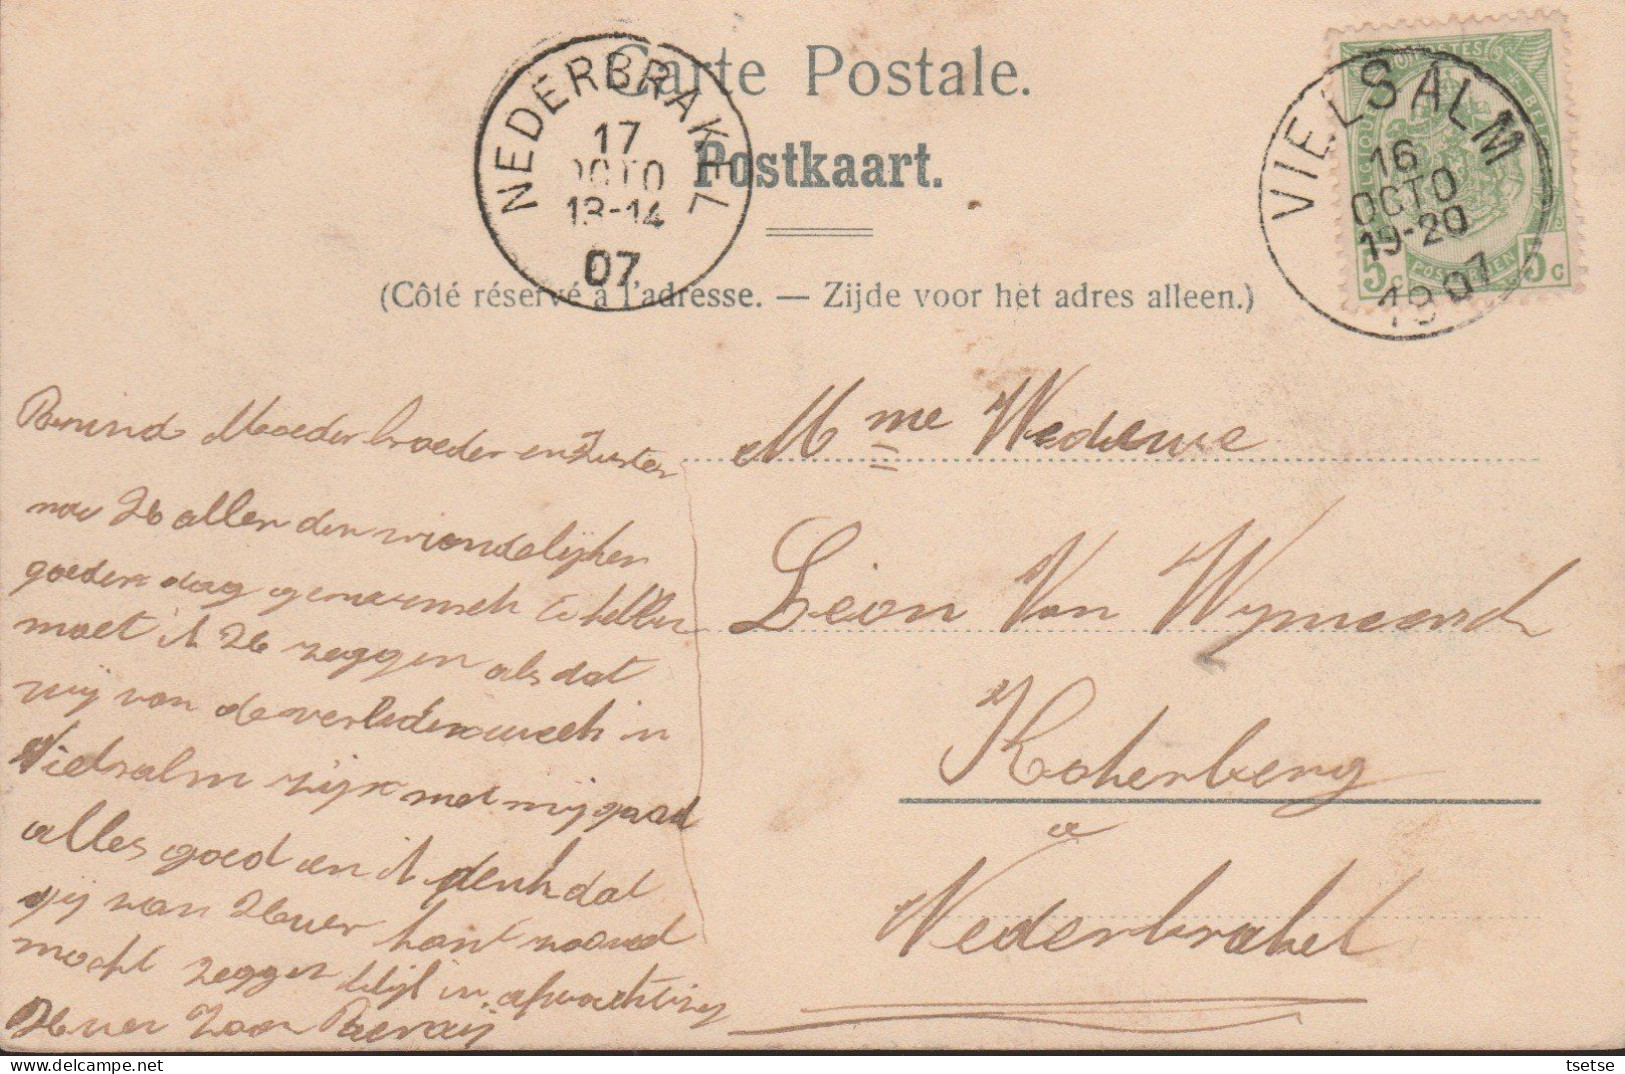 Carte Postale.
Postkaart.
(Côté réservé à l'adresse. — Zijde voor het adres alleen.)
NEDERBRAKEL
17
OCTO
13-14
07
VIELSALM
16
OCTO
19-20
1907
POSTES
5 C
POSTERIJEN
5 C
Bemind Moeder broeder en Zuster
nae U allen den vriendelijken
goeden dag gewenscht te hebben
moet ik U zeggen als dat
wij van de verleden week in
Vielsalm zijn met mij gaad
alles goed en ik denk dat
gij van Uwer kant
mocht zeggen blijf in afwachting
Uwer Zoon
Mme Wedewe
Leon Van Wymeersch
Koherberg
a
Nederbrakel
tsetse